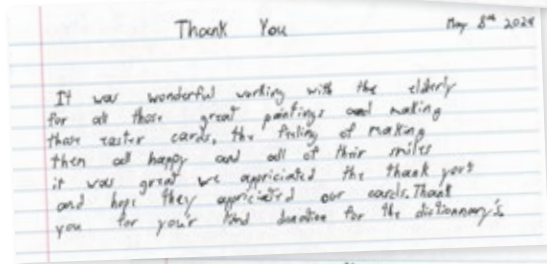 Thank You
May 8th 2024
It was wonderful working with the elderly
for all those great paintings and making
those easter cards, the feeling of making
them all happy and all of their smiles
it was great we appriciated the thank you's
and hope they appriciated our cards. Thank
you for your kind donation for the dictionnary's.